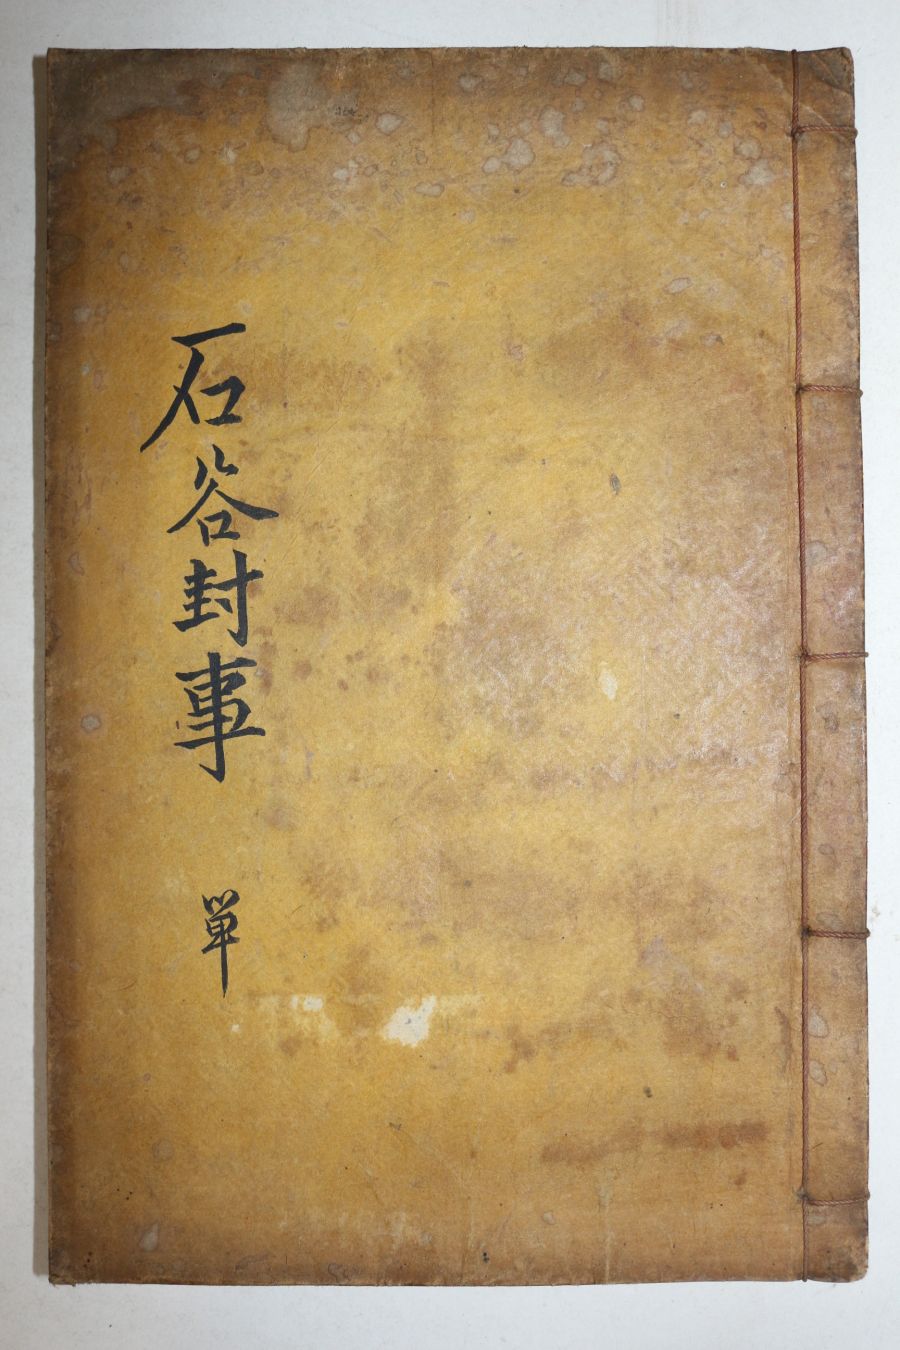 石谷封事
單